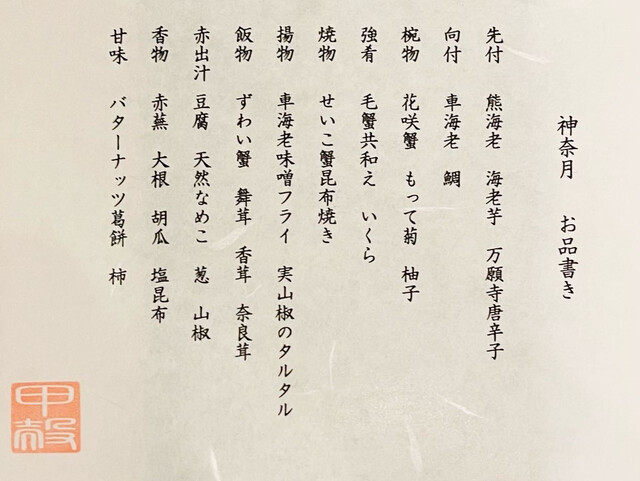 神奈月　お品書き
先付　熊海老　海老芋　万願寺唐辛子
向付　車海老　鯛
椀物　花咲蟹　もって菊　柚子
強肴　毛蟹共和え　いくら
焼物　せいこ蟹昆布焼き
揚物　車海老味噌フライ　実山椒のタルタル
飯物　ずわい蟹　舞茸　香茸　奈良茸
赤出汁　豆腐　天然なめこ　葱　山椒
香物　赤蕪　大根　胡瓜　塩昆布
甘味　バターナッツ葛餅　柿
甲殻